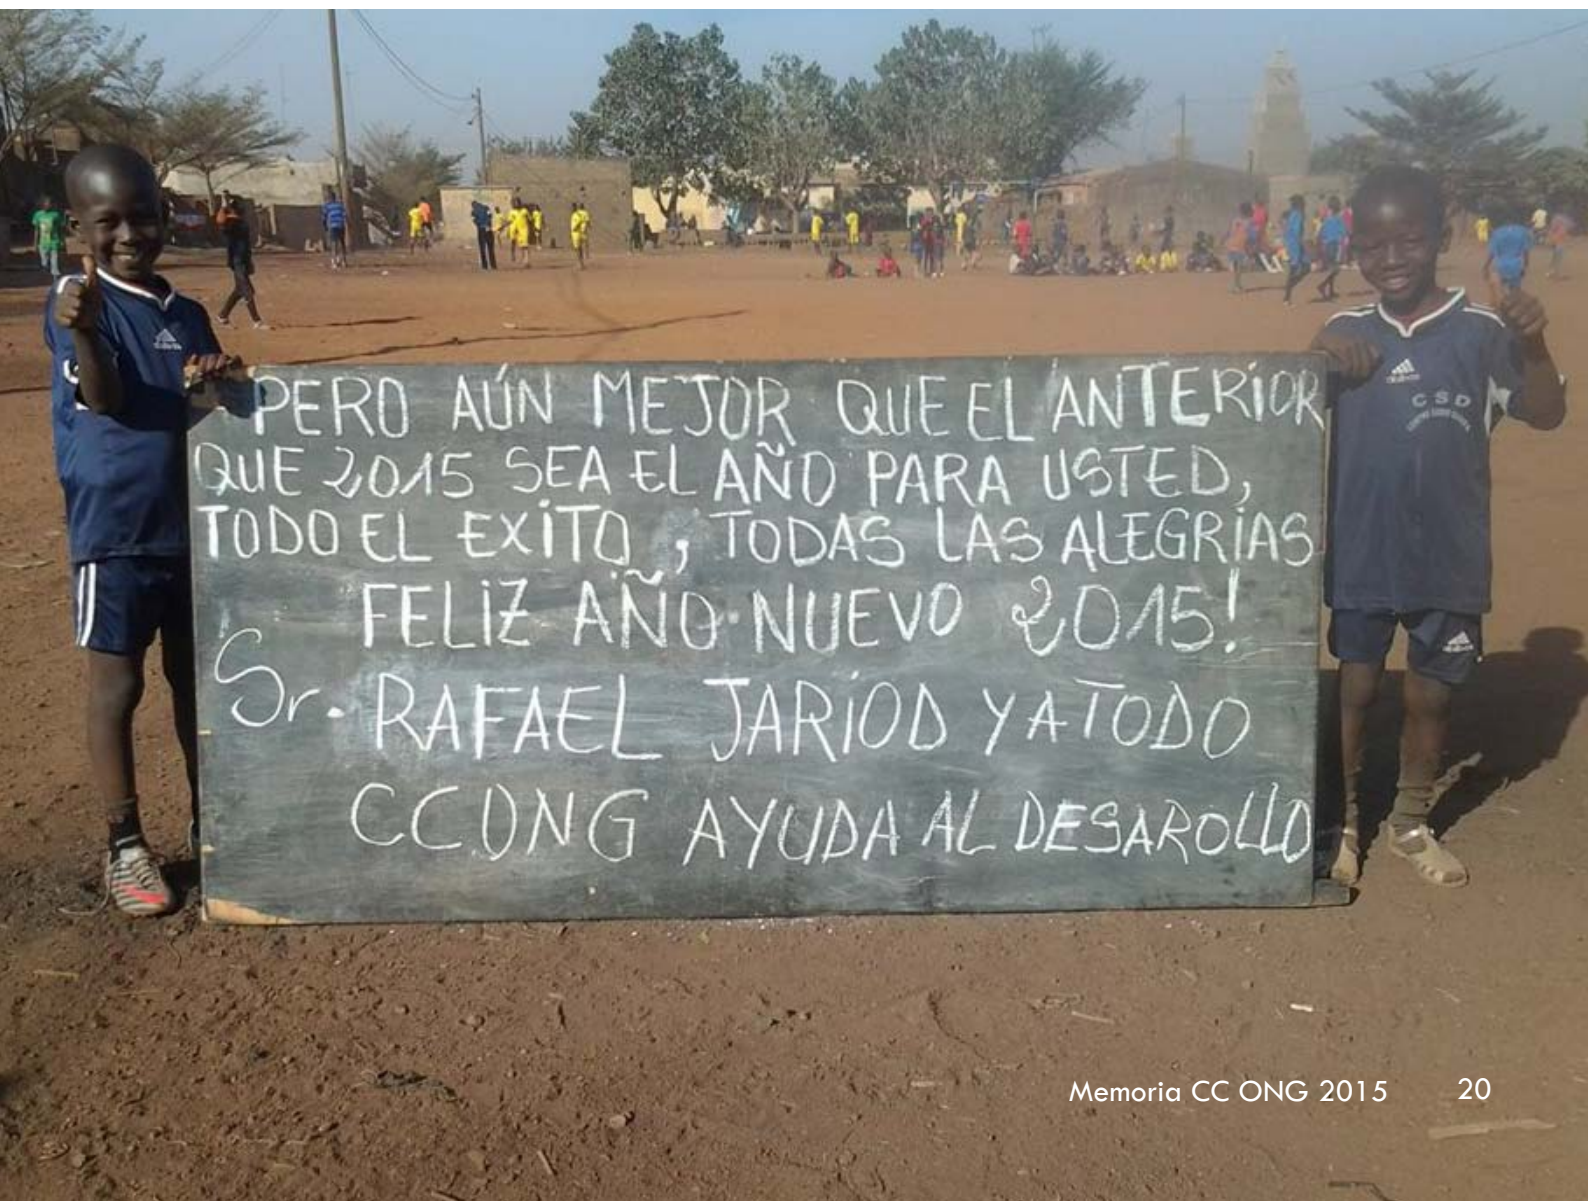 PERO AÚN MEJOR QUE EL ANTERIOR
QUE 2015 SEA EL AÑO PARA USTED,
TODO EL EXITO, TODAS LAS ALEGRÍAS
FELIZ AÑO NUEVO 2015!
Sr. RAFAEL JARIOD Y A TODO
CCONG AYUDA AL DESAROLLO
adidas
adidas
CSD
adidas
Memoria CC ONG 2015 20